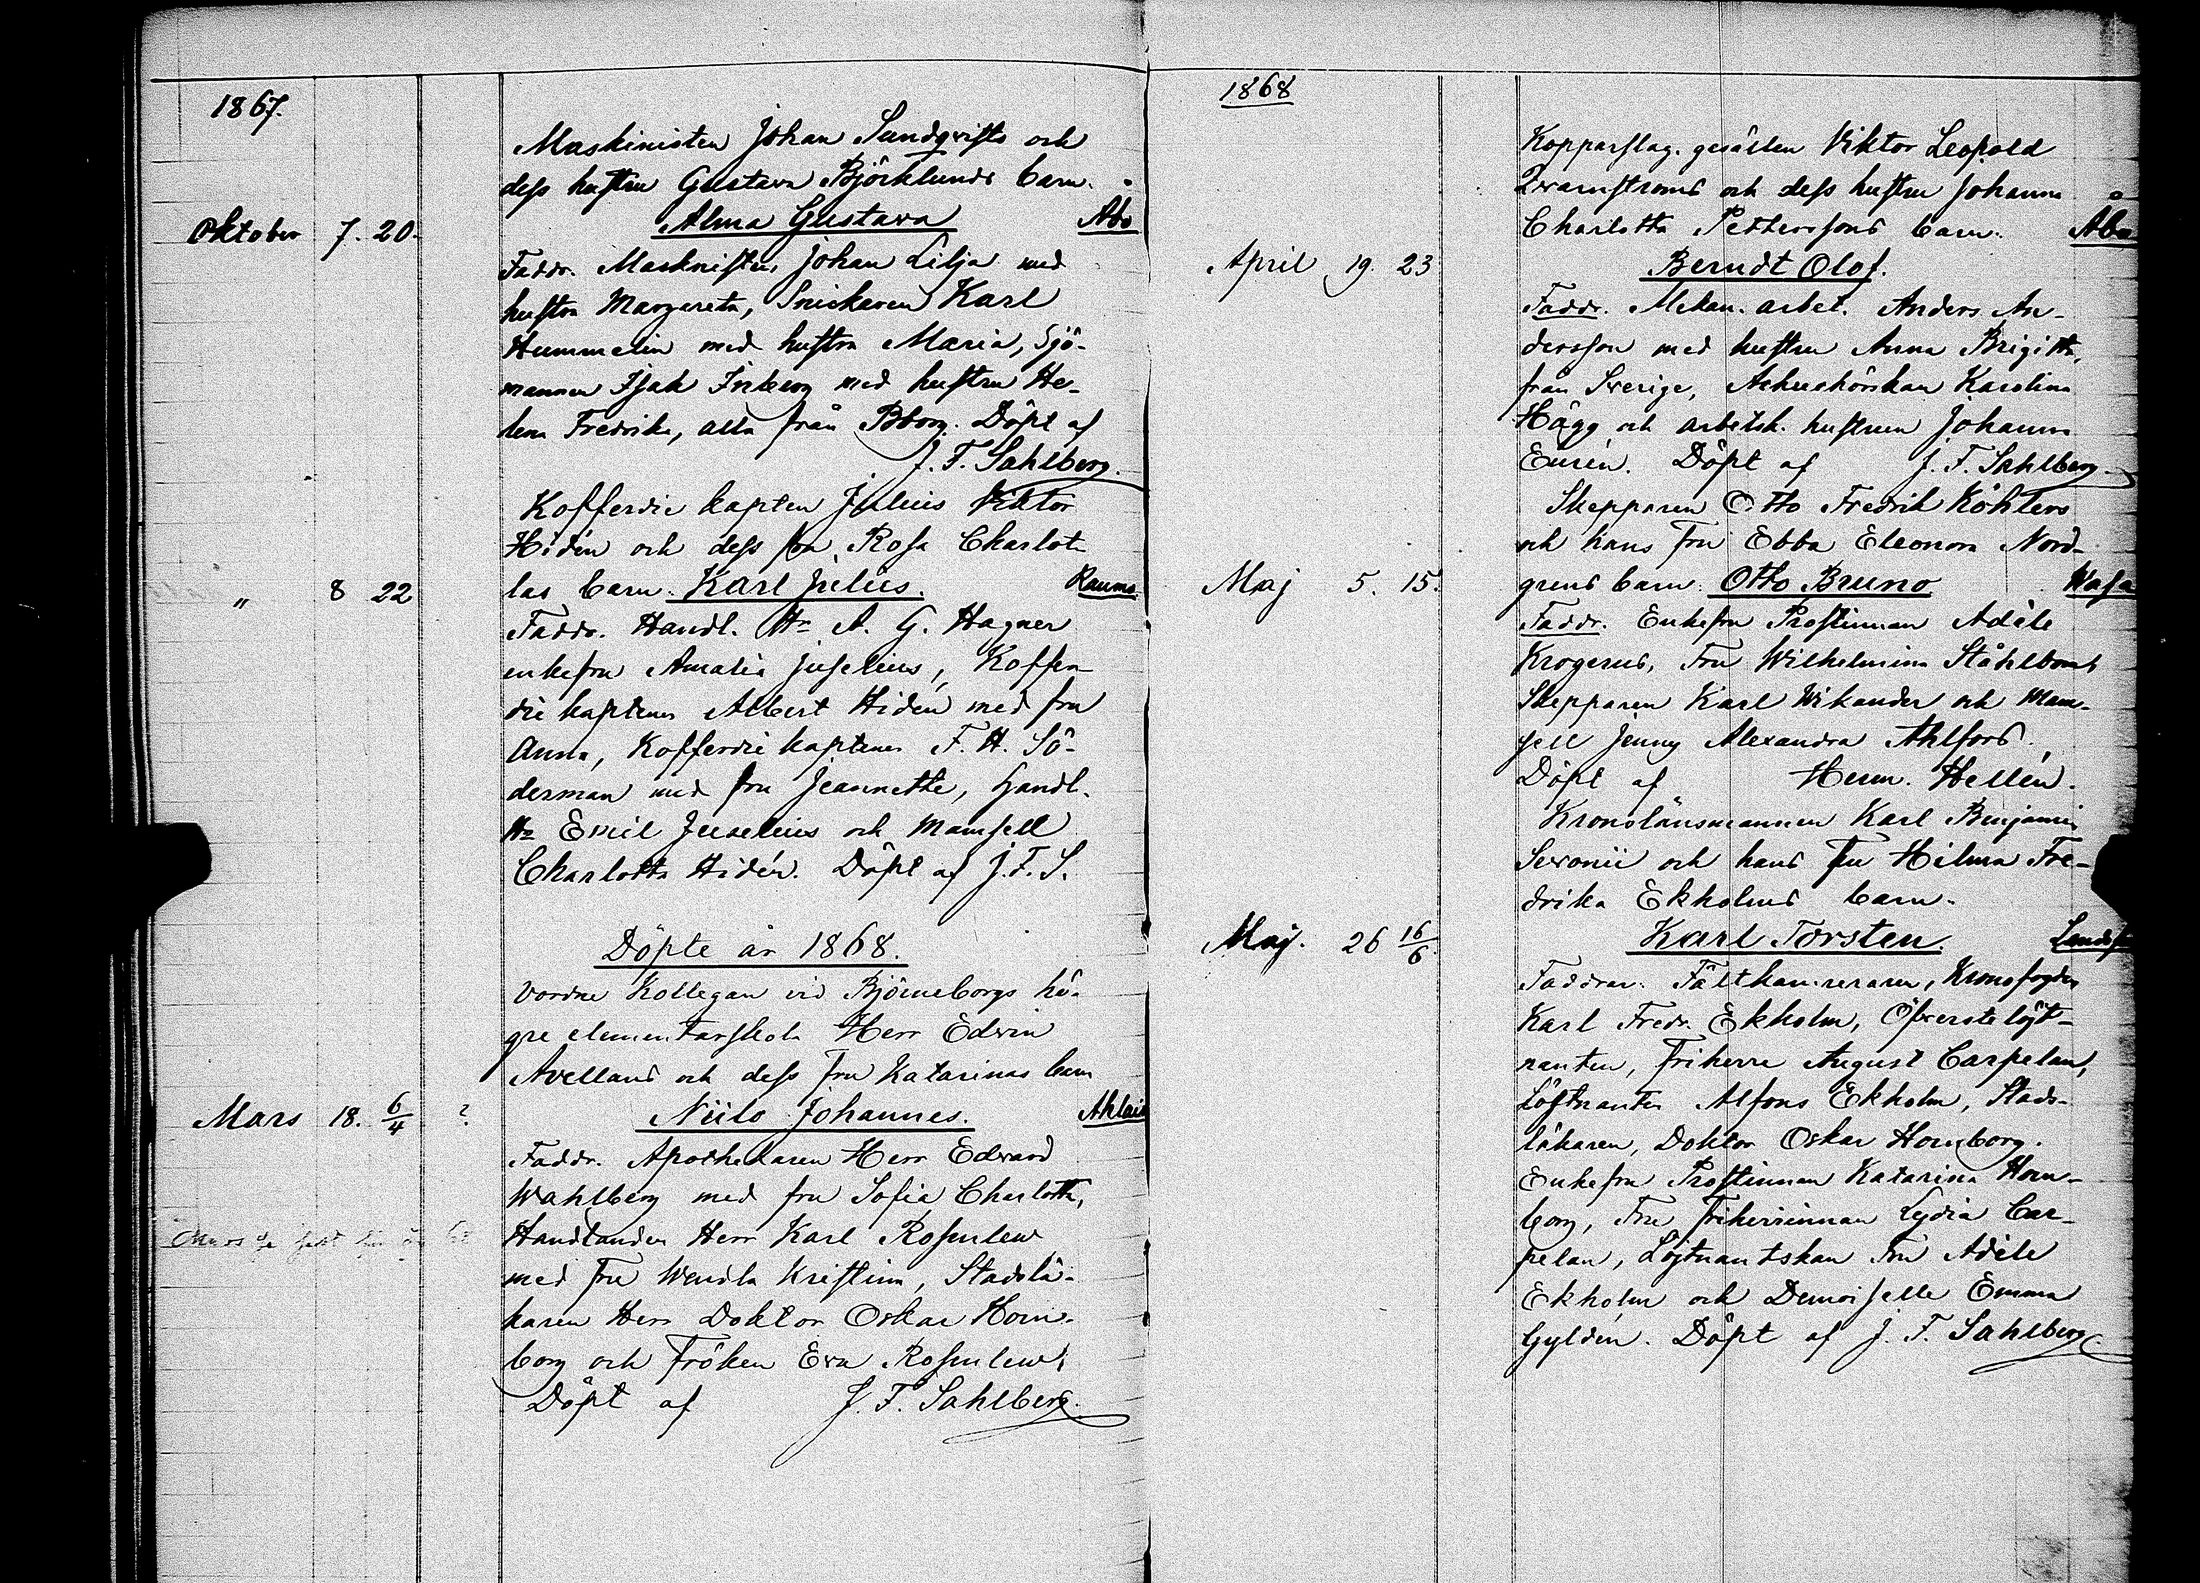 1867.
Maskinisten Johan Sundqvists och
dess hustru Gustava Björklunds barn
Oktober 7. 20. Alma Gustava Åbo
Faddr. Maskinisten Johan Lilja med
hustru Margareta, Snickaren Karl
Hummelin med hustru Maria, Sjö-
mannen Isak Friberg med hustru He-
lena Fredrika, alla från Bborg. Döpt af
J. F. Sahlberg.
Kofferdie kapten Julius Viktor
Hidén och dess fru Rosa Charlot-
" 8 22 tas barn. Karl Julius. Raumo
Faddr. Handl. Hr A. G. Hagner
enkefru Amalia Juselius, Koffer-
die kaptenen Albert Hidén med fru
Anna, Kofferdie kaptenen F. H. Sö-
derman med fru Jeannette, Handl.
Hr Emil Juselius och Mamsell
Charlotta Hidén. Döpt af J. F. S.
Döpte år 1868.
Vordne Kollegan vid Björneborgs hö-
gre elementarskola Herr Edwin
Avellans och dess fru Katarinas barn
Mars 18. 6/4 ? Niilo Johannes. Ahlai
Faddr. Apothekaren Herr Edvard
Wahlberg med fru Sofia Charlotta,
Handlanden Herr Karl Rosenlew
med fru Wendla Kristina, Stadslä-
karen Herr Doktor Oskar Horn-
borg och Fröken Eva Rosenlew.
Döpt af J. F. Sahlberg.
1868
Kopparslag. gesällen Viktor Leopold
Qvarnströms och dess hustru Johanna
Charlotta Petterssons barn. Åbo
April 19. 23 Berndt Olof.
Faddr. Mekan. arbet. Anders An-
dersson med hustru Anna Brigitta,
från Sverige, Karolina
Hägg och arbetsk. hustrun Johanna
Eurén. Döpt af J. F. Sahlberg
Skepparen Otto Fredrik Köhlers
och hans fru Ebba Eleonora Nord-
Maj 5. 15. grens barn. Otto Bruno Wasa
Faddr. Enkefru Prostinnan Adèle
Krogerus, Fru Wilhelmina Ståhlbom,
Skepparen Karl Wikander och Mam-
sell Jenny Alexandra Ahlfors.
Döpt af Herm. Hellén.
Kronolänsmannen Karl Benjamin
Sevonii och hans fru Hilma Fre-
drika Ekholms barn.
Maj. 26 16/6. Karl Torsten. Landsf
Faddrar. Fältkamreraren, Kronofogden
Karl Fredr. Ekholm, Öfverstelöjt-
nanten, Friherre August Carpelan,
Löjtnanten Alfons Ekholm, Stads-
läkaren, Doktor Oskar Hornborg.
Enkefru Prostinnan Katarina Horn-
borg, Fru Friherrinnan Lydia Car-
pelan, Löjtnantskan Fru Adèle
Ekholm och Demoiselle Emma
Gyldén. Döpt af J. F. Sahlberg